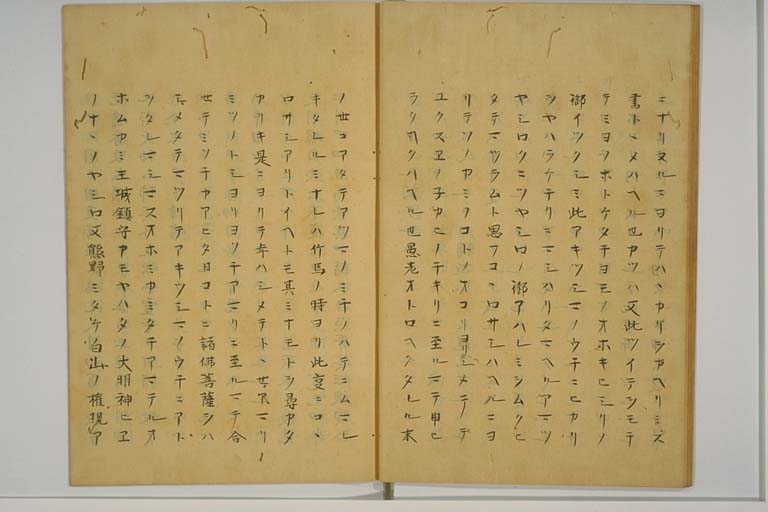 ニナリヌルニヨリテハヽカリシカヘリミス
書トヽメハヘル也カツハ又此ツイテシモテ
テミヨノホトケタチヨモノオホキヒシリノ
御イツクシミ此アキツシマノウチニヒカリ
シヤハラケテチリニマシハリタマヘルアマツ
ヤシロクニツヤシロノ御アハレミシムクヒ
タテマツラムト思フコヽロサシハヘルニヨ
リテソノカミノコトノオコリヨリシメテテ
ユクスヱノ子カヒノチキリニ至ルマテ申ヒ
ラクヲクハヘル也愚老オトロヘクタレル末
ノ世コアタテアツマノミチノハテニムマレ
キタレルミナレハ竹馬ノ時ヨリ此支ニコヽ
ロサシアリトイヘトモ其ミナモトヲ尋カタ
カリキ是ニヨリテ年ハシメテトヽセアマリ
ミツノトシヨリヨツテアマリニ至ルマテ合
せテミソチカアヒタ日コトニ諸佛菩薩シハ
シメタテマツリテアキツシマノウチニアト
シタレマシマスオホミカミタチアマテルオ
ホムカミ王城鎮守カモヤハタノ大明神ヒヱ
ノナヽノヤシロ又熊野ミタケ白山ノ權現ア